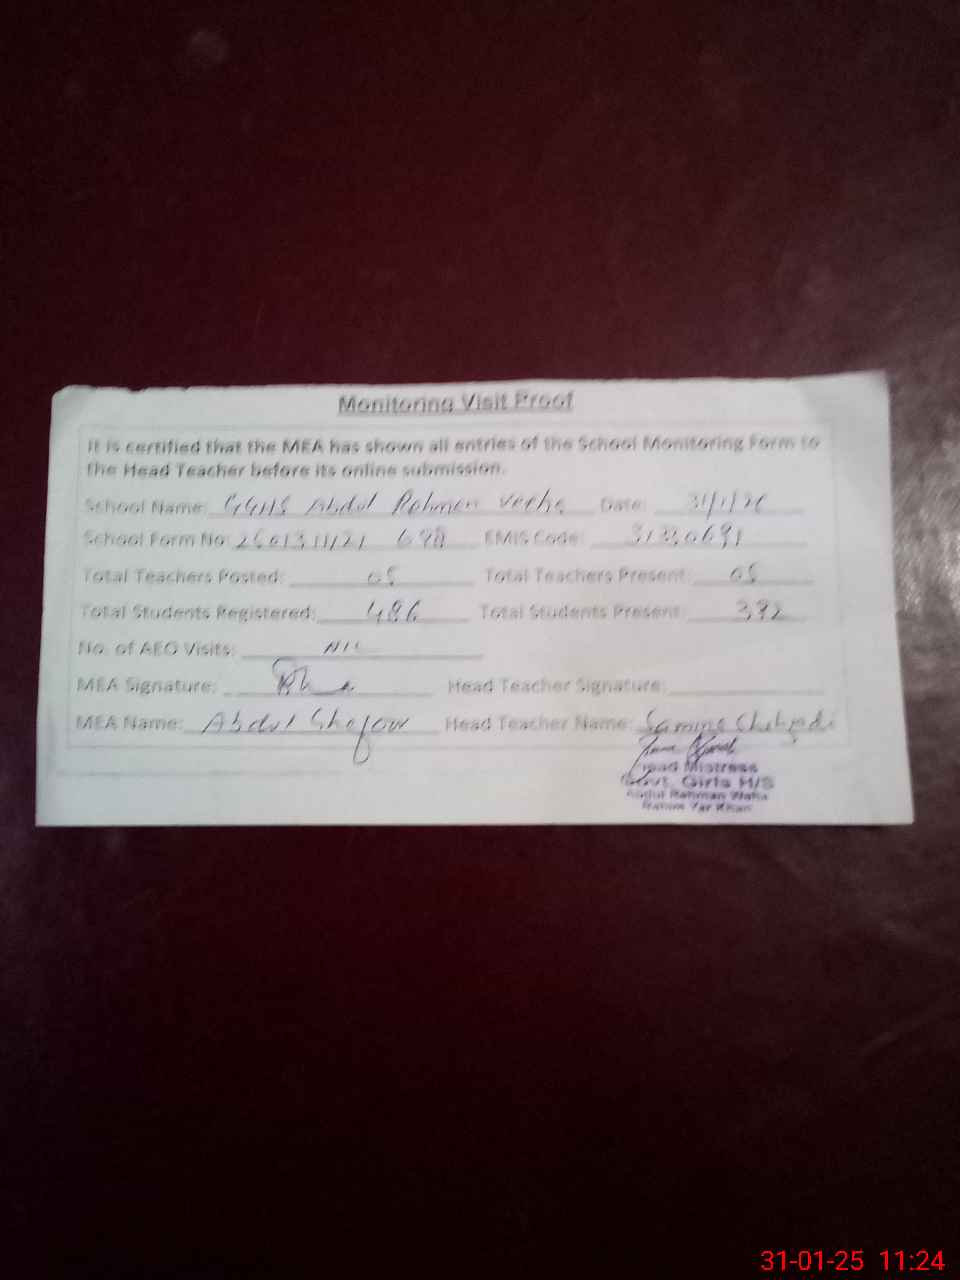 Monitoring Visit Proof
It is certified that the MEA has shown all entries of the School Monitoring Form to
the Head Teacher before its online submission.
School Name: GGHS Abdul Rahman Date: 31/1/26
School Form No: EMIS Code: 31330691
Total Teachers Posted: 05 Total Teachers Present: 05
Total Students Registered: 486 Total Students Present: 392
No. of AEO Visits: NIL
MEA Signature: Head Teacher Signature:
MEA Name: Abdul Ghafoor Head Teacher Name:
Head Mistress
Govt. Girls H/S
Abdul Rahman Waha
Rahim Yar Khan
31-01-25 11:24